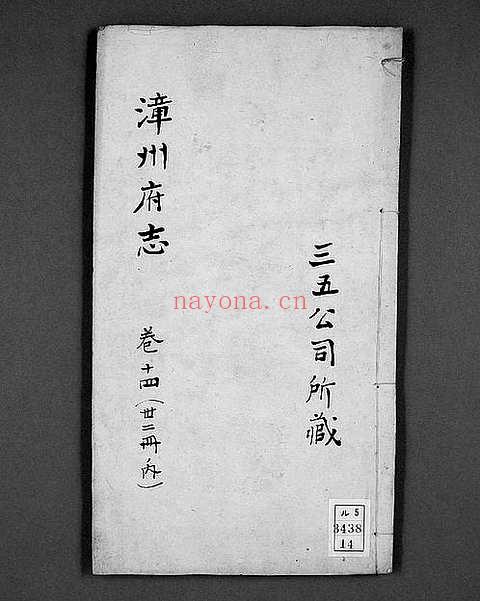 漳州府志
卷十四(廿二冊內)
三五公司所藏
nayona.cn
ル5
3438
14